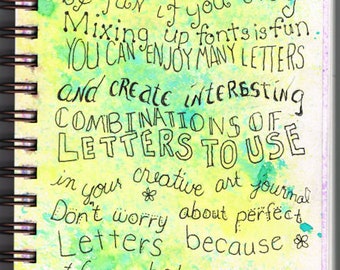 by fun if you
Mixing up fonts is fun
YOU CAN ENJOY MANY LETTERS
AND CREATE INTERESTING
COMBINATIONS OF
LETTERS TO USE
in your creative art journal
Don't worry about perfect
Letters because